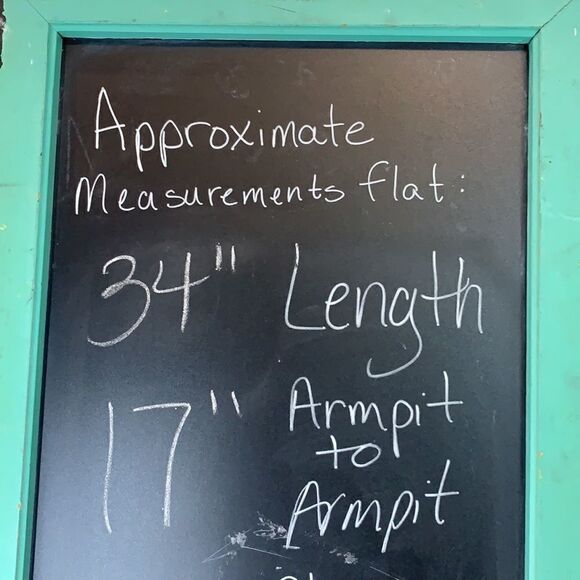 Approximate
Measurements flat:
34" Length
17" Armpit
to
Armpit